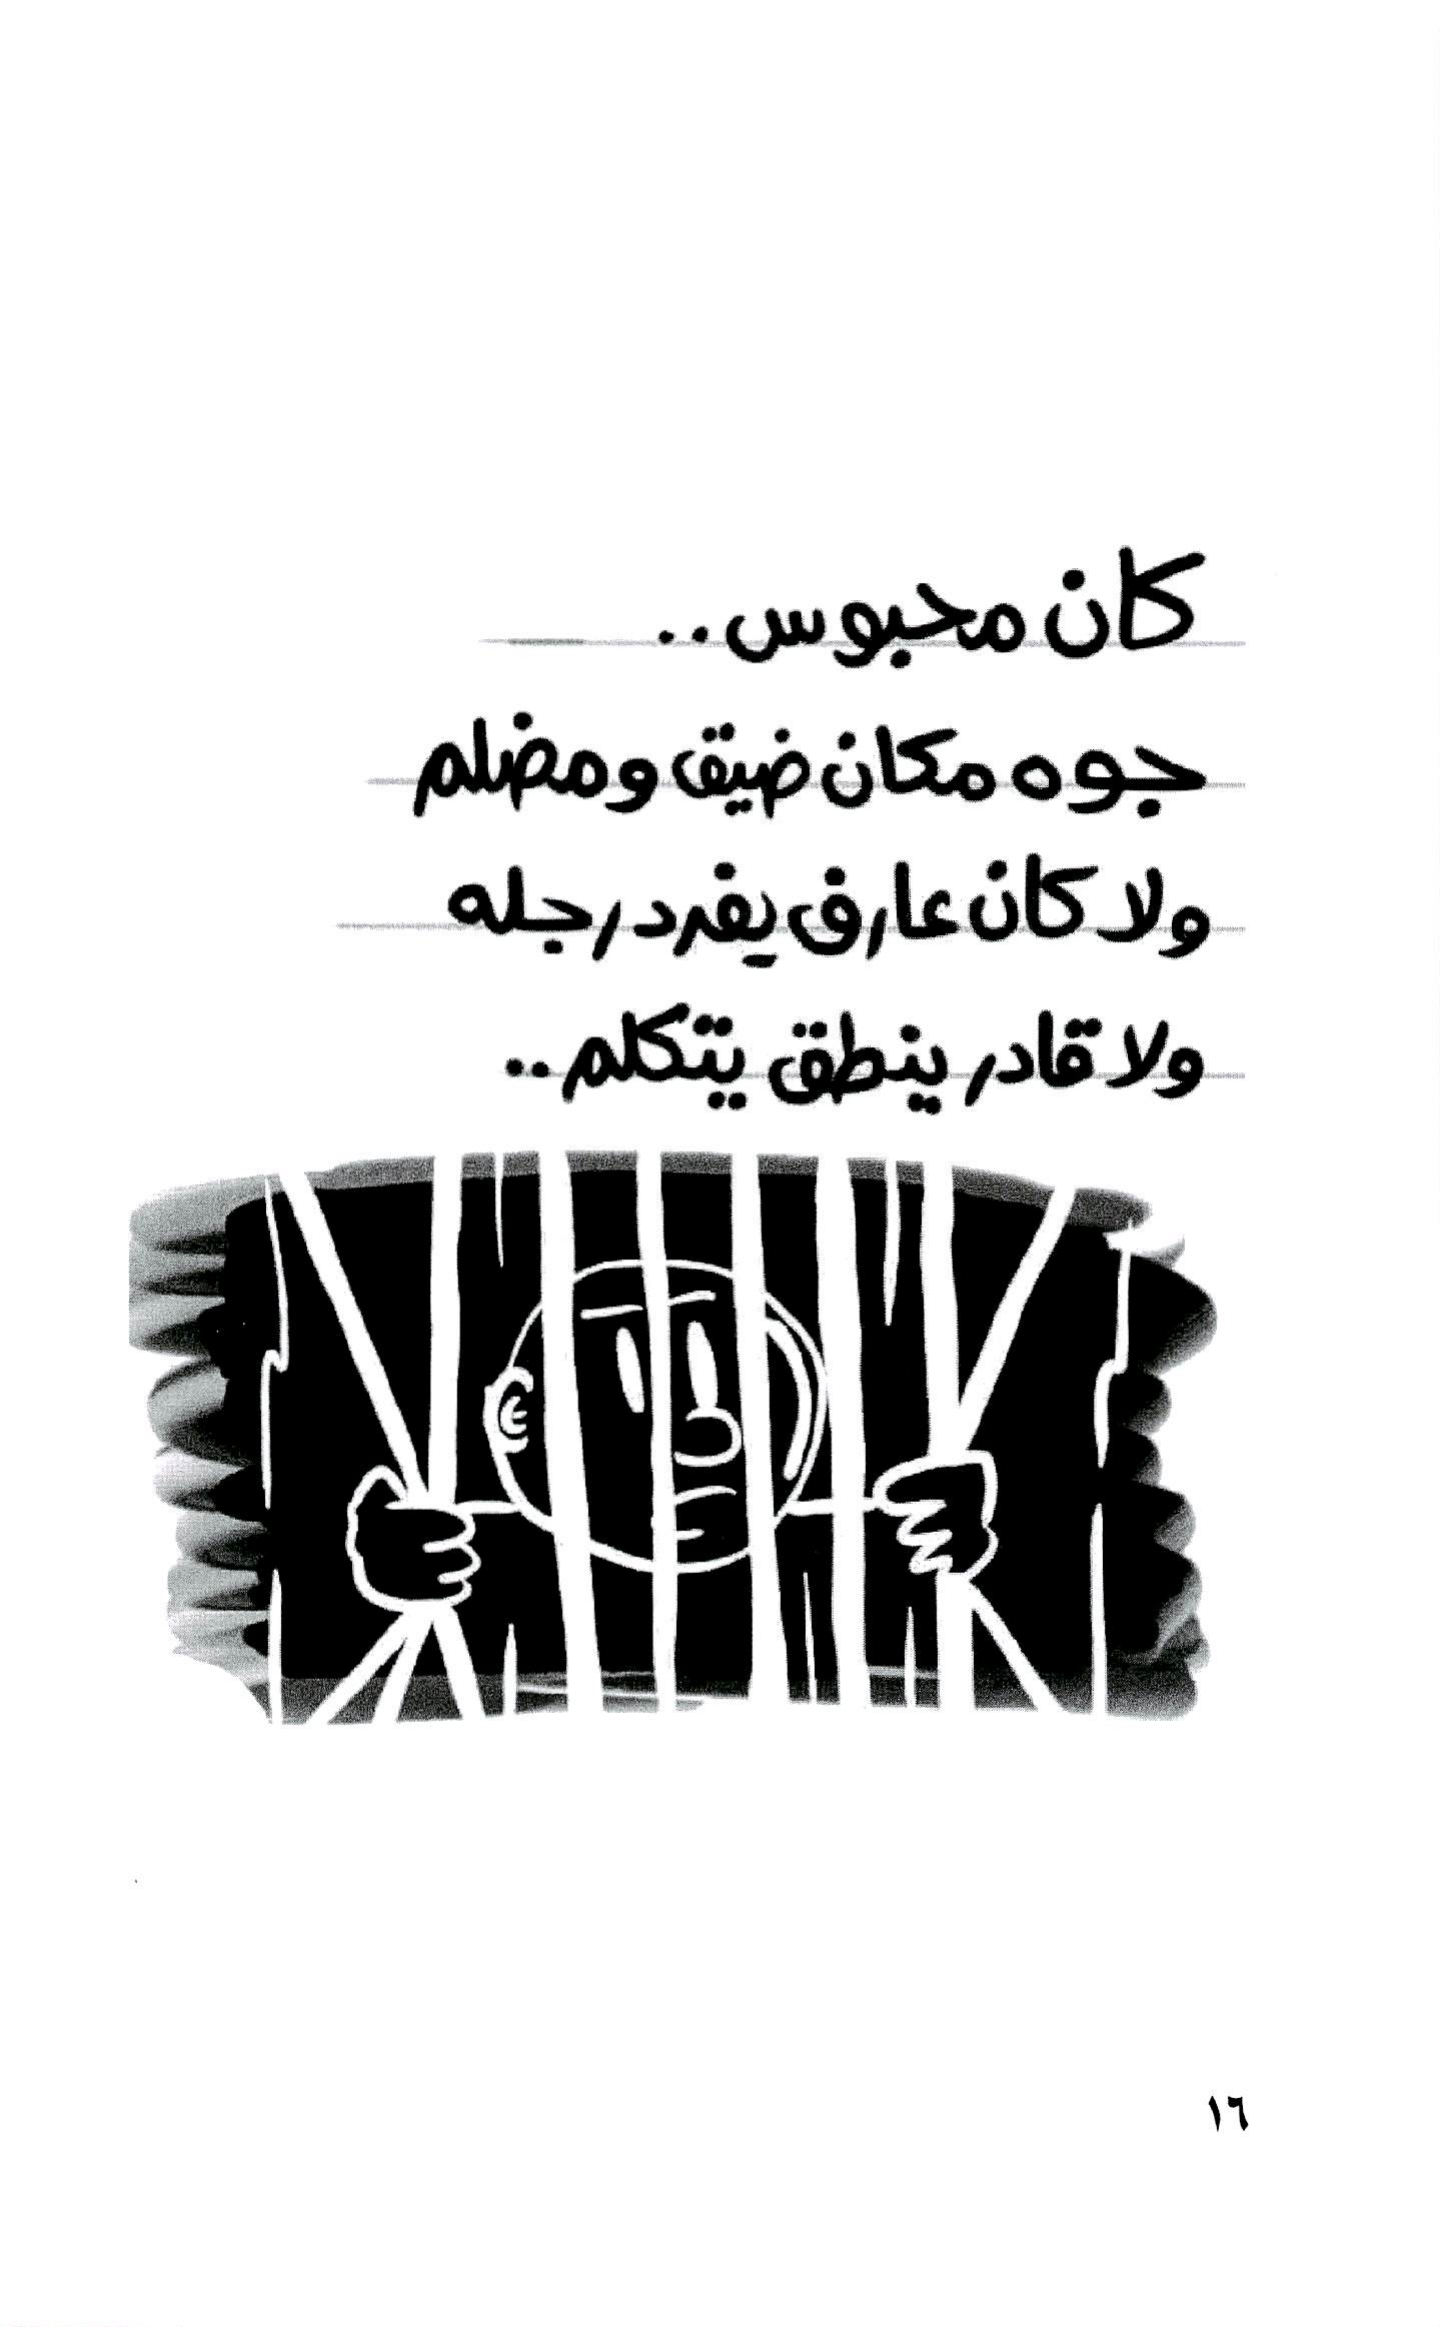 كان محبوس..
جوه مكان ضيق ومضلم
ولا كان عارف يفرد رجله
ولا قادر ينطق يتكلم..
١٦